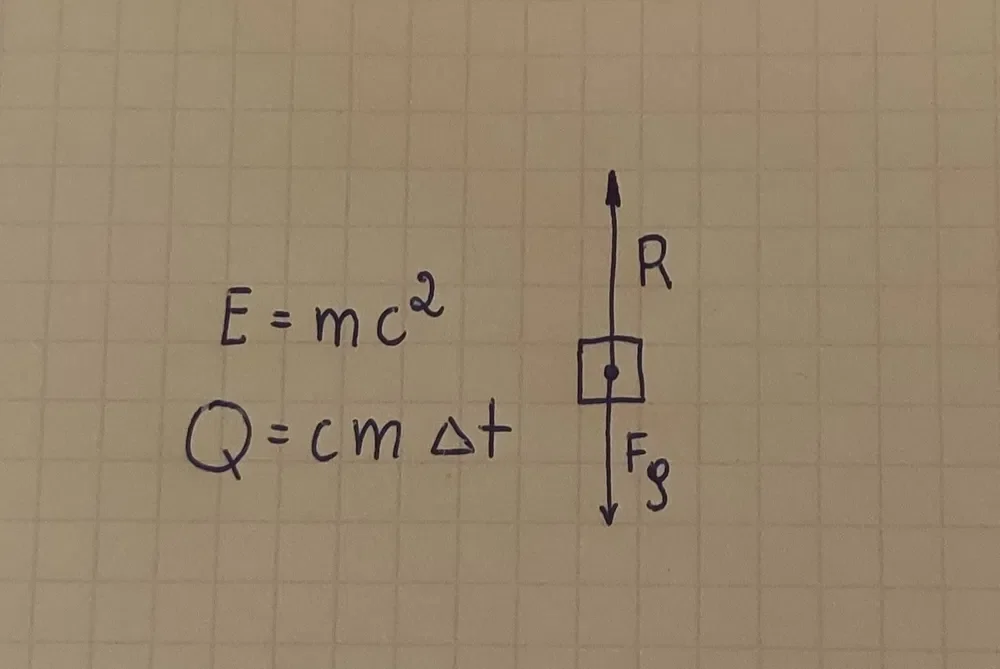 E = mc²
Q = cm Δt
R
Fg